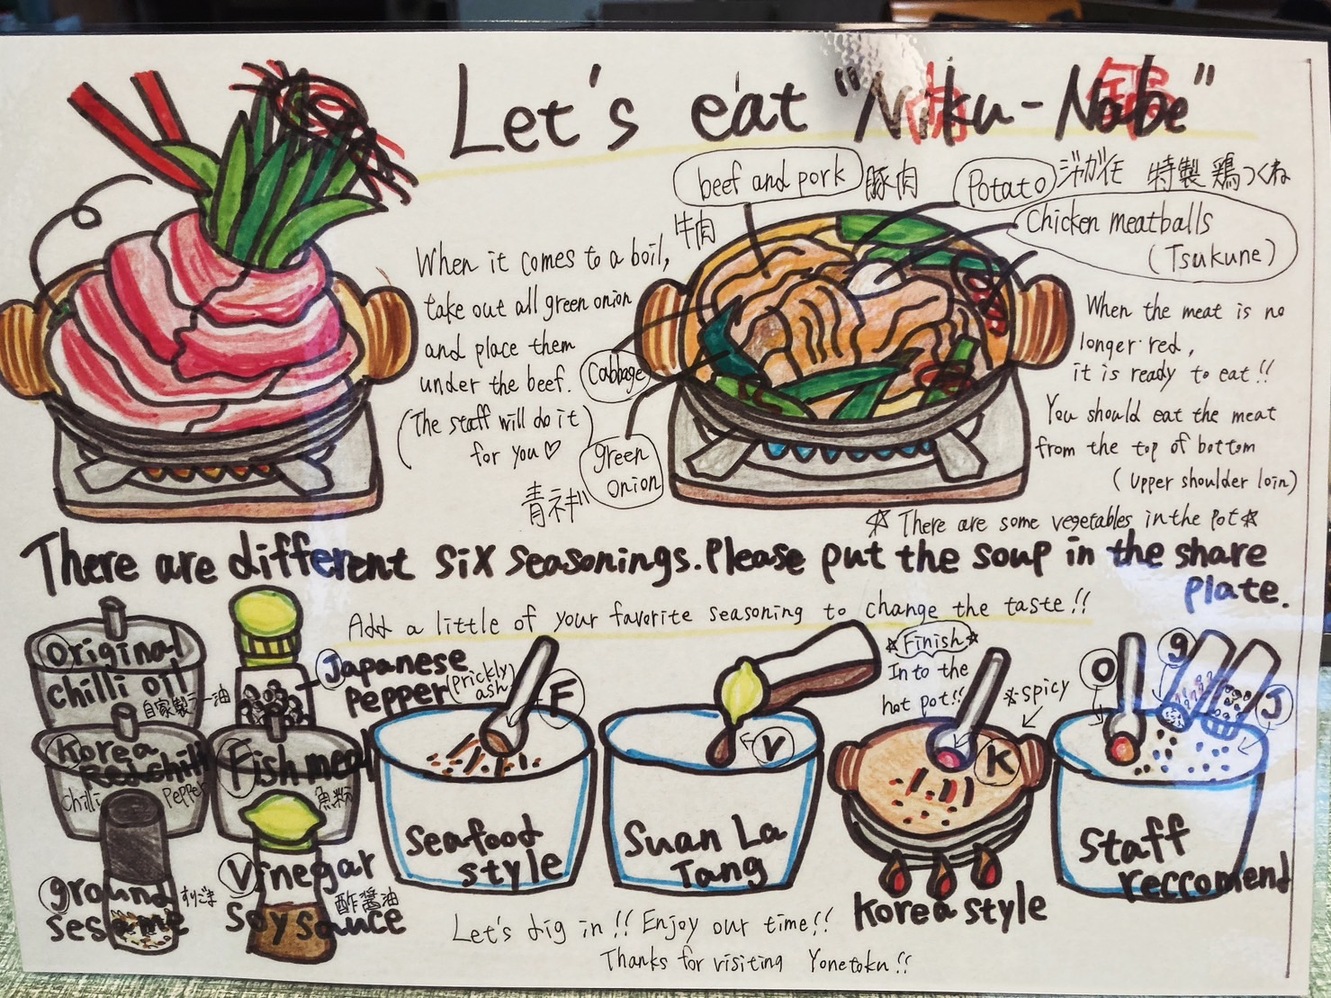 Let's eat "Niku-Nabe"
肉 鍋
beef and pork 豚肉
牛肉
Potato ジャガイモ 特製 鶏つくね
Chicken meatballs
(Tsukune)
When it comes to a boil,
take out all green onion
and place them
under the beef.
(The staff will do it
for you♡
Cabbage
green
onion
青ネギ
When the meat is no
longer red,
it is ready to eat!!
You should eat the meat
from the top of bottom
(upper shoulder loin)
☆ There are some vegetables in the pot☆
There are different six seasonings. Please put the soup in the share
plate.
Add a little of your favorite seasoning to change the taste!!
Original
chilli oil
自家製ラー油
Japanese
pepper
(prickly
ash)
Korea
Red chilli
chilli pepper
Fish meal
魚粉
ground
sesame
すりごま
Vinegar
soy sauce
酢醤油
F
Seafood
style
V
Suan La
Tang
☆Finish☆
Into the
hot pot!!
※spicy
K
Korea style
O
g
J
Staff
reccomend
Let's dig in!! Enjoy our time!!
Thanks for visiting Yonetoku!!